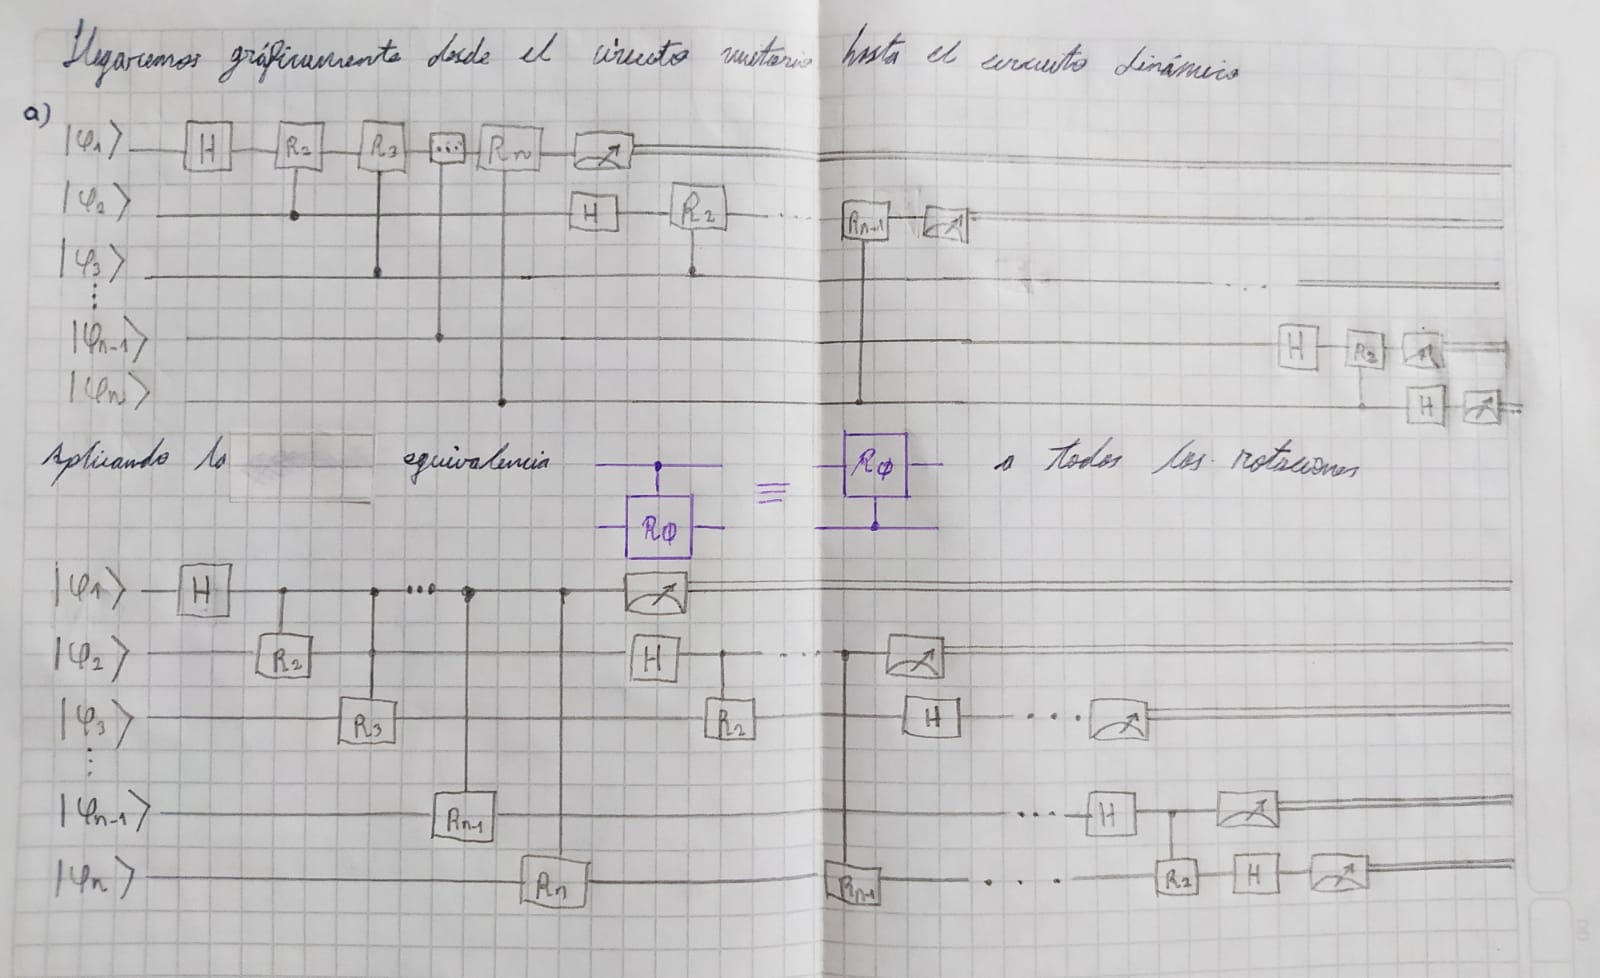 Llegaremos gráficamente desde el circuito unitario hasta el circuito dinámico
a)
|φ₁⟩ H R₂ R₃ ... Rₙ
|φ₂⟩ H R₂ ..... Rₙ₋₁
|φ₃⟩ ...
⋮
|φₙ₋₁⟩ H R₂
|φₙ⟩ H
Aplicando la equivalencia Rφ ≡ Rφ a todas las rotaciones
|φ₁⟩ H ...
|φ₂⟩ R₂ H .....
|φ₃⟩ R₃ R₂ H ....
⋮
|φₙ₋₁⟩ Rₙ₋₁ ... H
|φₙ⟩ Rₙ Rₙ₋₁ .... R₂ H